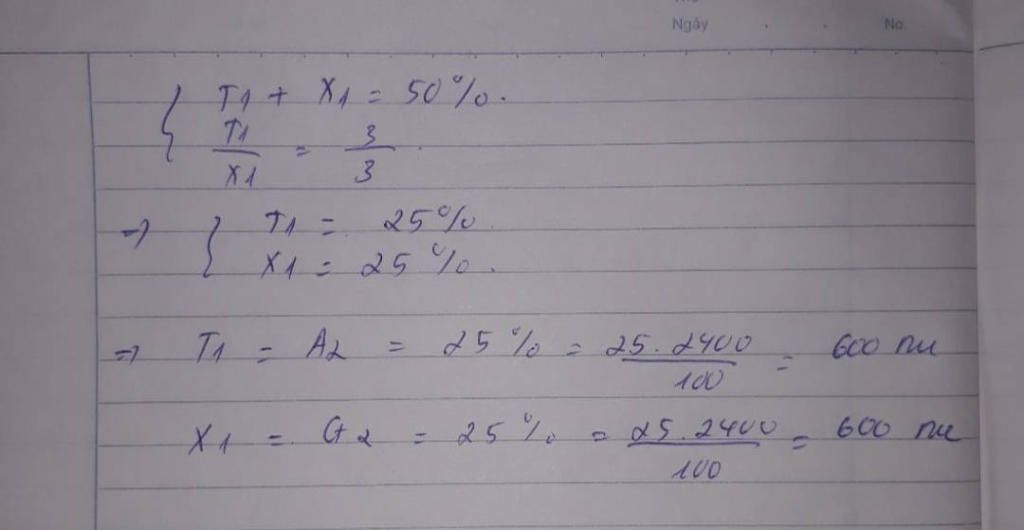 Ngày . . No.
T1 + X1 = 50%.
T1/X1 = 3/3.
=> T1 = 25%.
X1 = 25%.
=> T1 = A2 = 25% = 25.2400/100 = 600 nu
X1 = G2 = 25% = 25.2400/100 = 600 nu